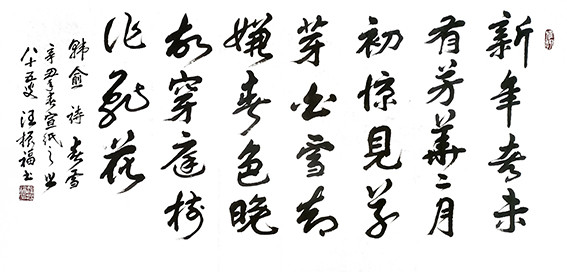 新年都未
有芳華二月
初惊見草
芽白雪却
嫌春色晚
故穿庭樹
作飛花
韓愈 詩 春雪
辛丑年春宣紙之
八十五叟 汪振福書